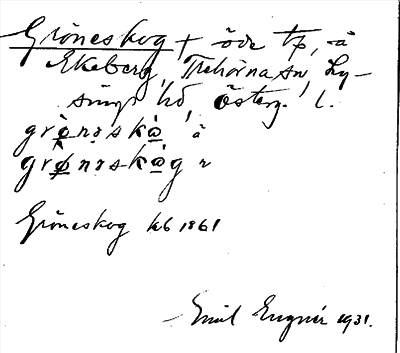 Gröneskog † öde tp, å
Ekeberg, Trehörna sn, Ly-
sings hd, Österg. l.
grö̀nəskò̤ å
grø̀nəskò̤g r
Gröneskog kb 1861
Emil Engnér 1931.